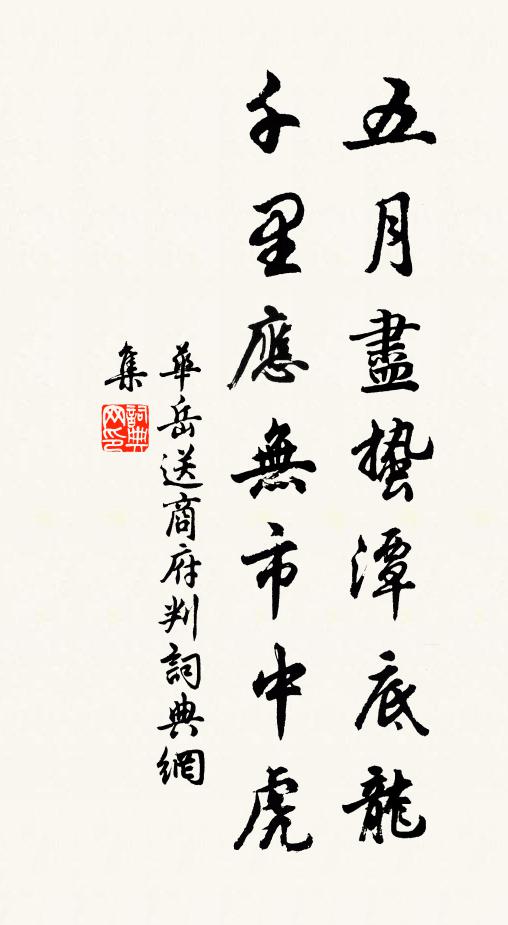 五月盡蟄潭底龍
千里應無市中虎
華岳送商府判詞典網
集
詞典網印